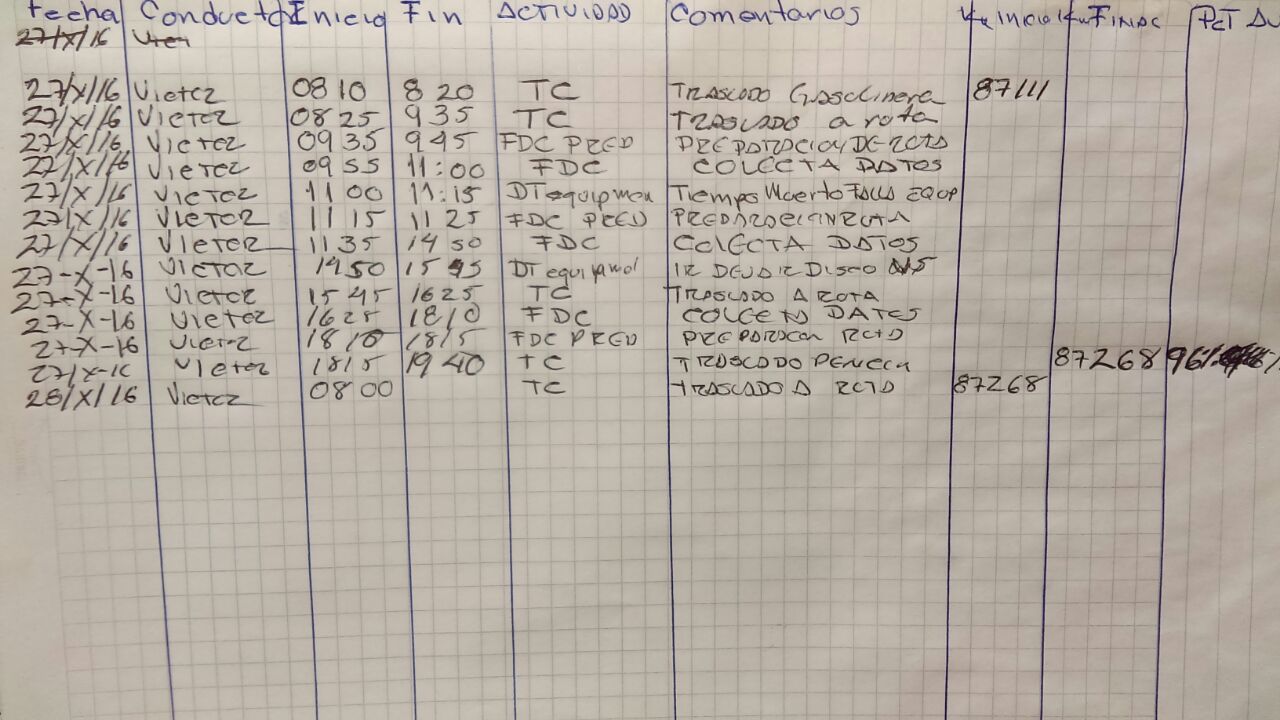 Fecha Conductor Inicio Fin ACTIVIDAD Comentarios Km Inicio Km FINAL PCT
27/X/16
27/X/16 Victor 0810 820 TC TRASLADO Gasolinera 87111
27/X/16 Victor 0825 935 TC TRASLADO a rota
27/X/16 Victor 0935 945 FDC PREP PREPARACION DE RCTD
27/X/16 Victor 0955 11:00 FDC COLECTA DATOS
27/X/16 Victor 1100 11:15 DT equipmen Tiempo Muerto Falla EQOP
27/X/16 Victor 1115 1125 FDC PREP
27/X/16 Victor 1135 1450 FDC COLECTA DATOS
27-X-16 Victor 1450 1545 DT IR DEJAR DISCO
27-X-16 Victor 1545 1625 TC TRASLADO A ROTA
27-X-16 Victor 1625 1810 FDC COLECTA DATOS
27-X-16 Victor 1810 1815 FDC PREP PREPARACION RCTD
27/X-16 Victor 1815 1940 TC TRASLADO PENECA 87268 96%
28/X/16 Victor 0800 TC TRASLADO A RCTD 87268